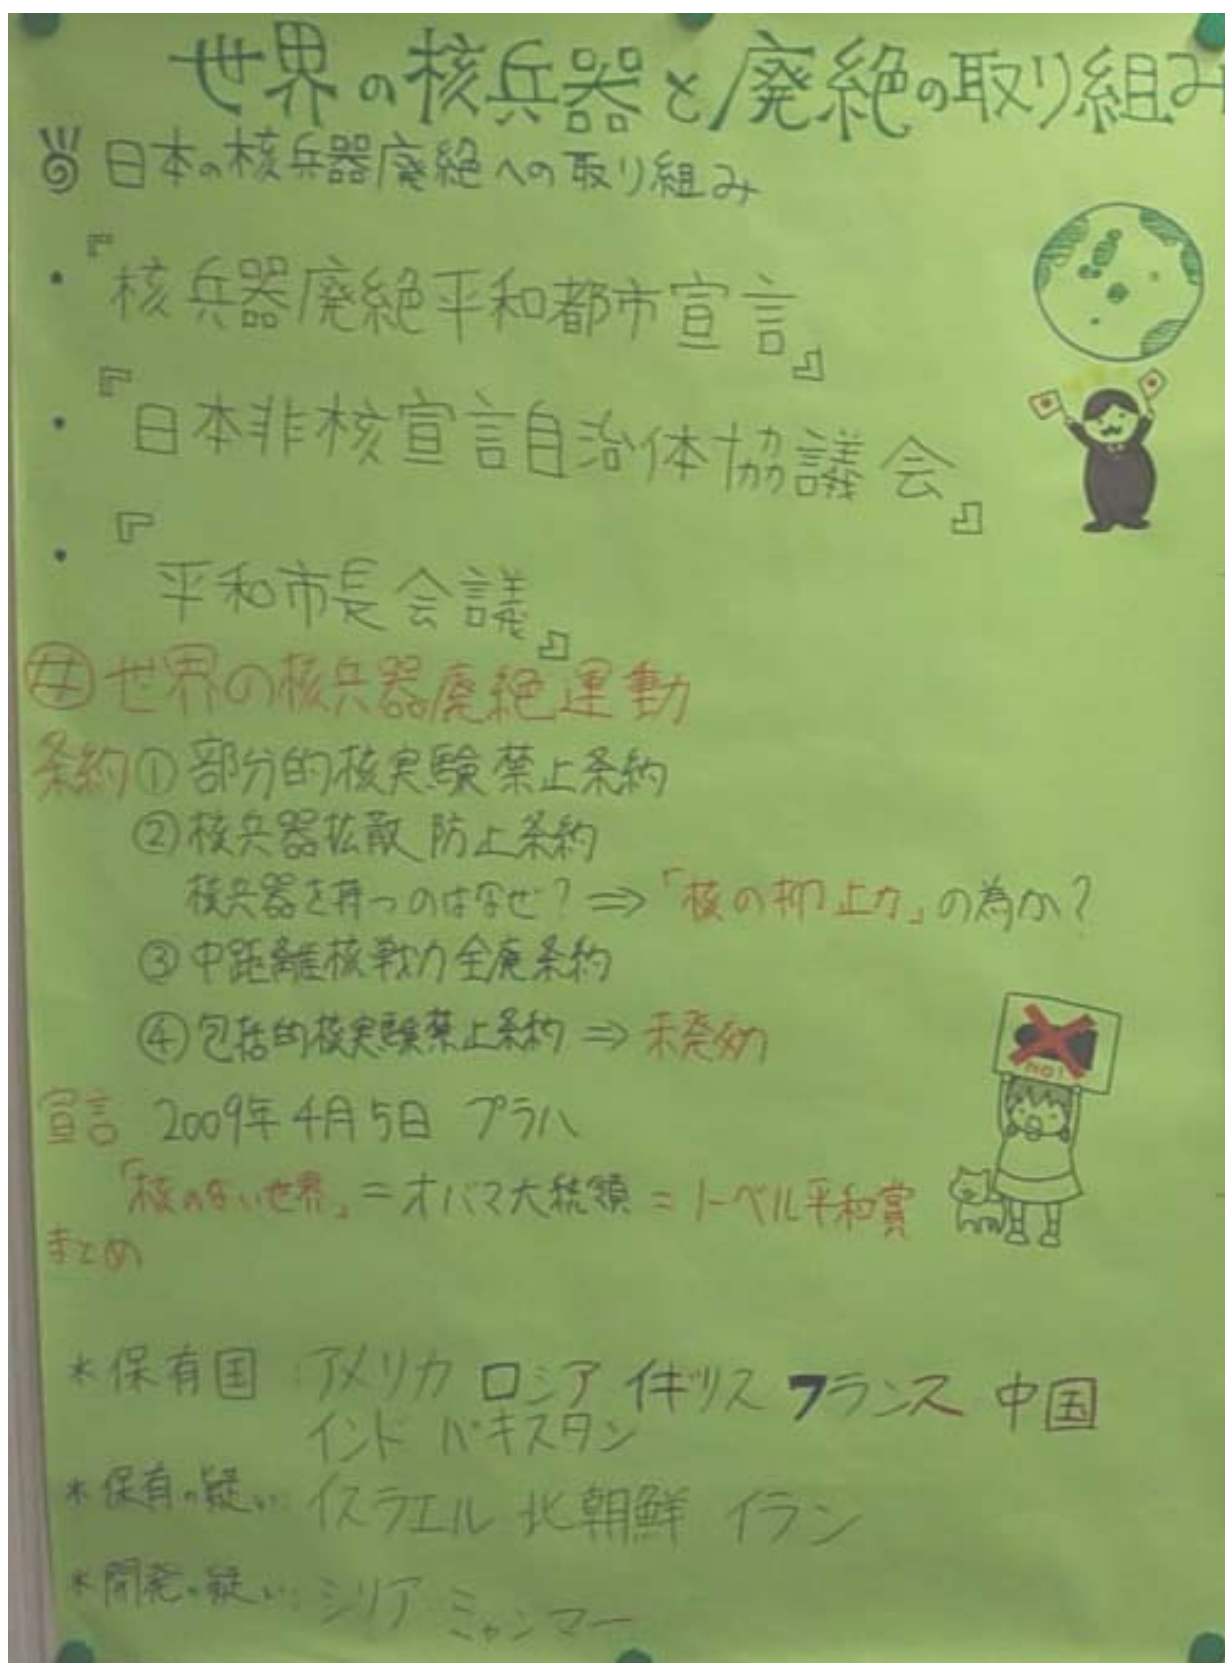 世界の核兵器と廃絶の取り組み
日本の核兵器廃絶への取り組み
・『核兵器廃絶平和都市宣言』
・『日本非核宣言自治体協議会』
・『平和市長会議』
世界の核兵器廃絶運動
条約①部分的核実験禁止条約
②核兵器拡散防止条約
核兵器を持つのはなぜ?⇒「核の抑止力」の為か?
③中距離核戦力全廃条約
④包括的核実験禁止条約⇒未発効
NO!
宣言 2009年4月5日 プラハ
「核のない世界」=オバマ大統領=ノーベル平和賞
まとめ
*保有国 アメリカ ロシア イギリス フランス 中国
インド パキスタン
*保有の疑い イスラエル 北朝鮮 イラン
*開発の疑い シリア ミャンマー